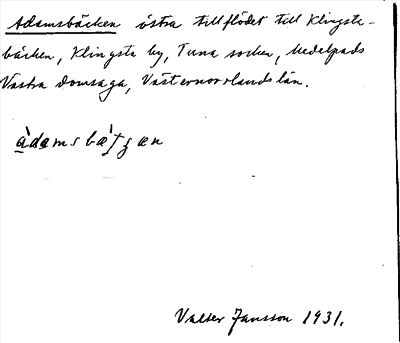 Adamsbäcken östra tillflödet till Klingsta-
bäcken, Klingsta by, Tuna socken, Medelpads
Västra domsaga, Västernorrlands län.
àdamsbæ̀tʃæn
Valter Jansson 1931.